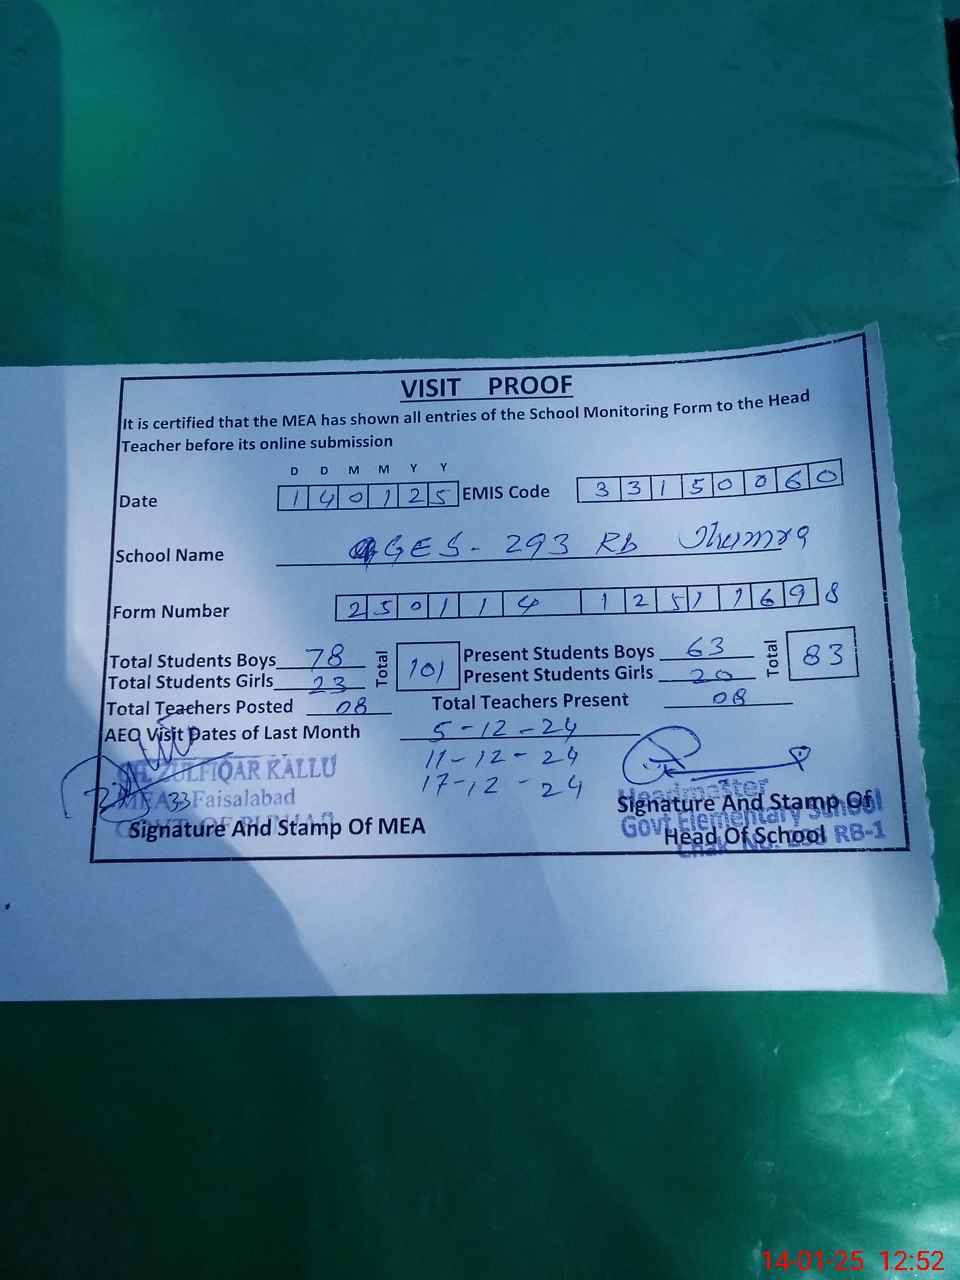 VISIT PROOF
It is certified that the MEA has shown all entries of the School Monitoring Form to the Head
Teacher before its online submission
D D M M Y Y
Date 1 4 0 1 2 5 EMIS Code 3 3 1 5 0 0 6 0
School Name GES - 293 RB Jhumra
Form Number 2 5 0 1 1 4 1 2 5 1 1 6 9 8
Total Students Boys 78 Total 101 Present Students Boys 63 Total 83
Total Students Girls 23 Present Students Girls 20
Total Teachers Posted 08 Total Teachers Present 08
AEO Visit Dates of Last Month 5-12-24
11-12-24
17-12-24
CH. ZULFIQAR KALLU
MEA 33 Faisalabad
Signature And Stamp Of MEA
Headmaster
Signature And Stamp Of
Govt Elementary School
Head Of School
Chak No. 293 RB-1
14-01-25 12:52